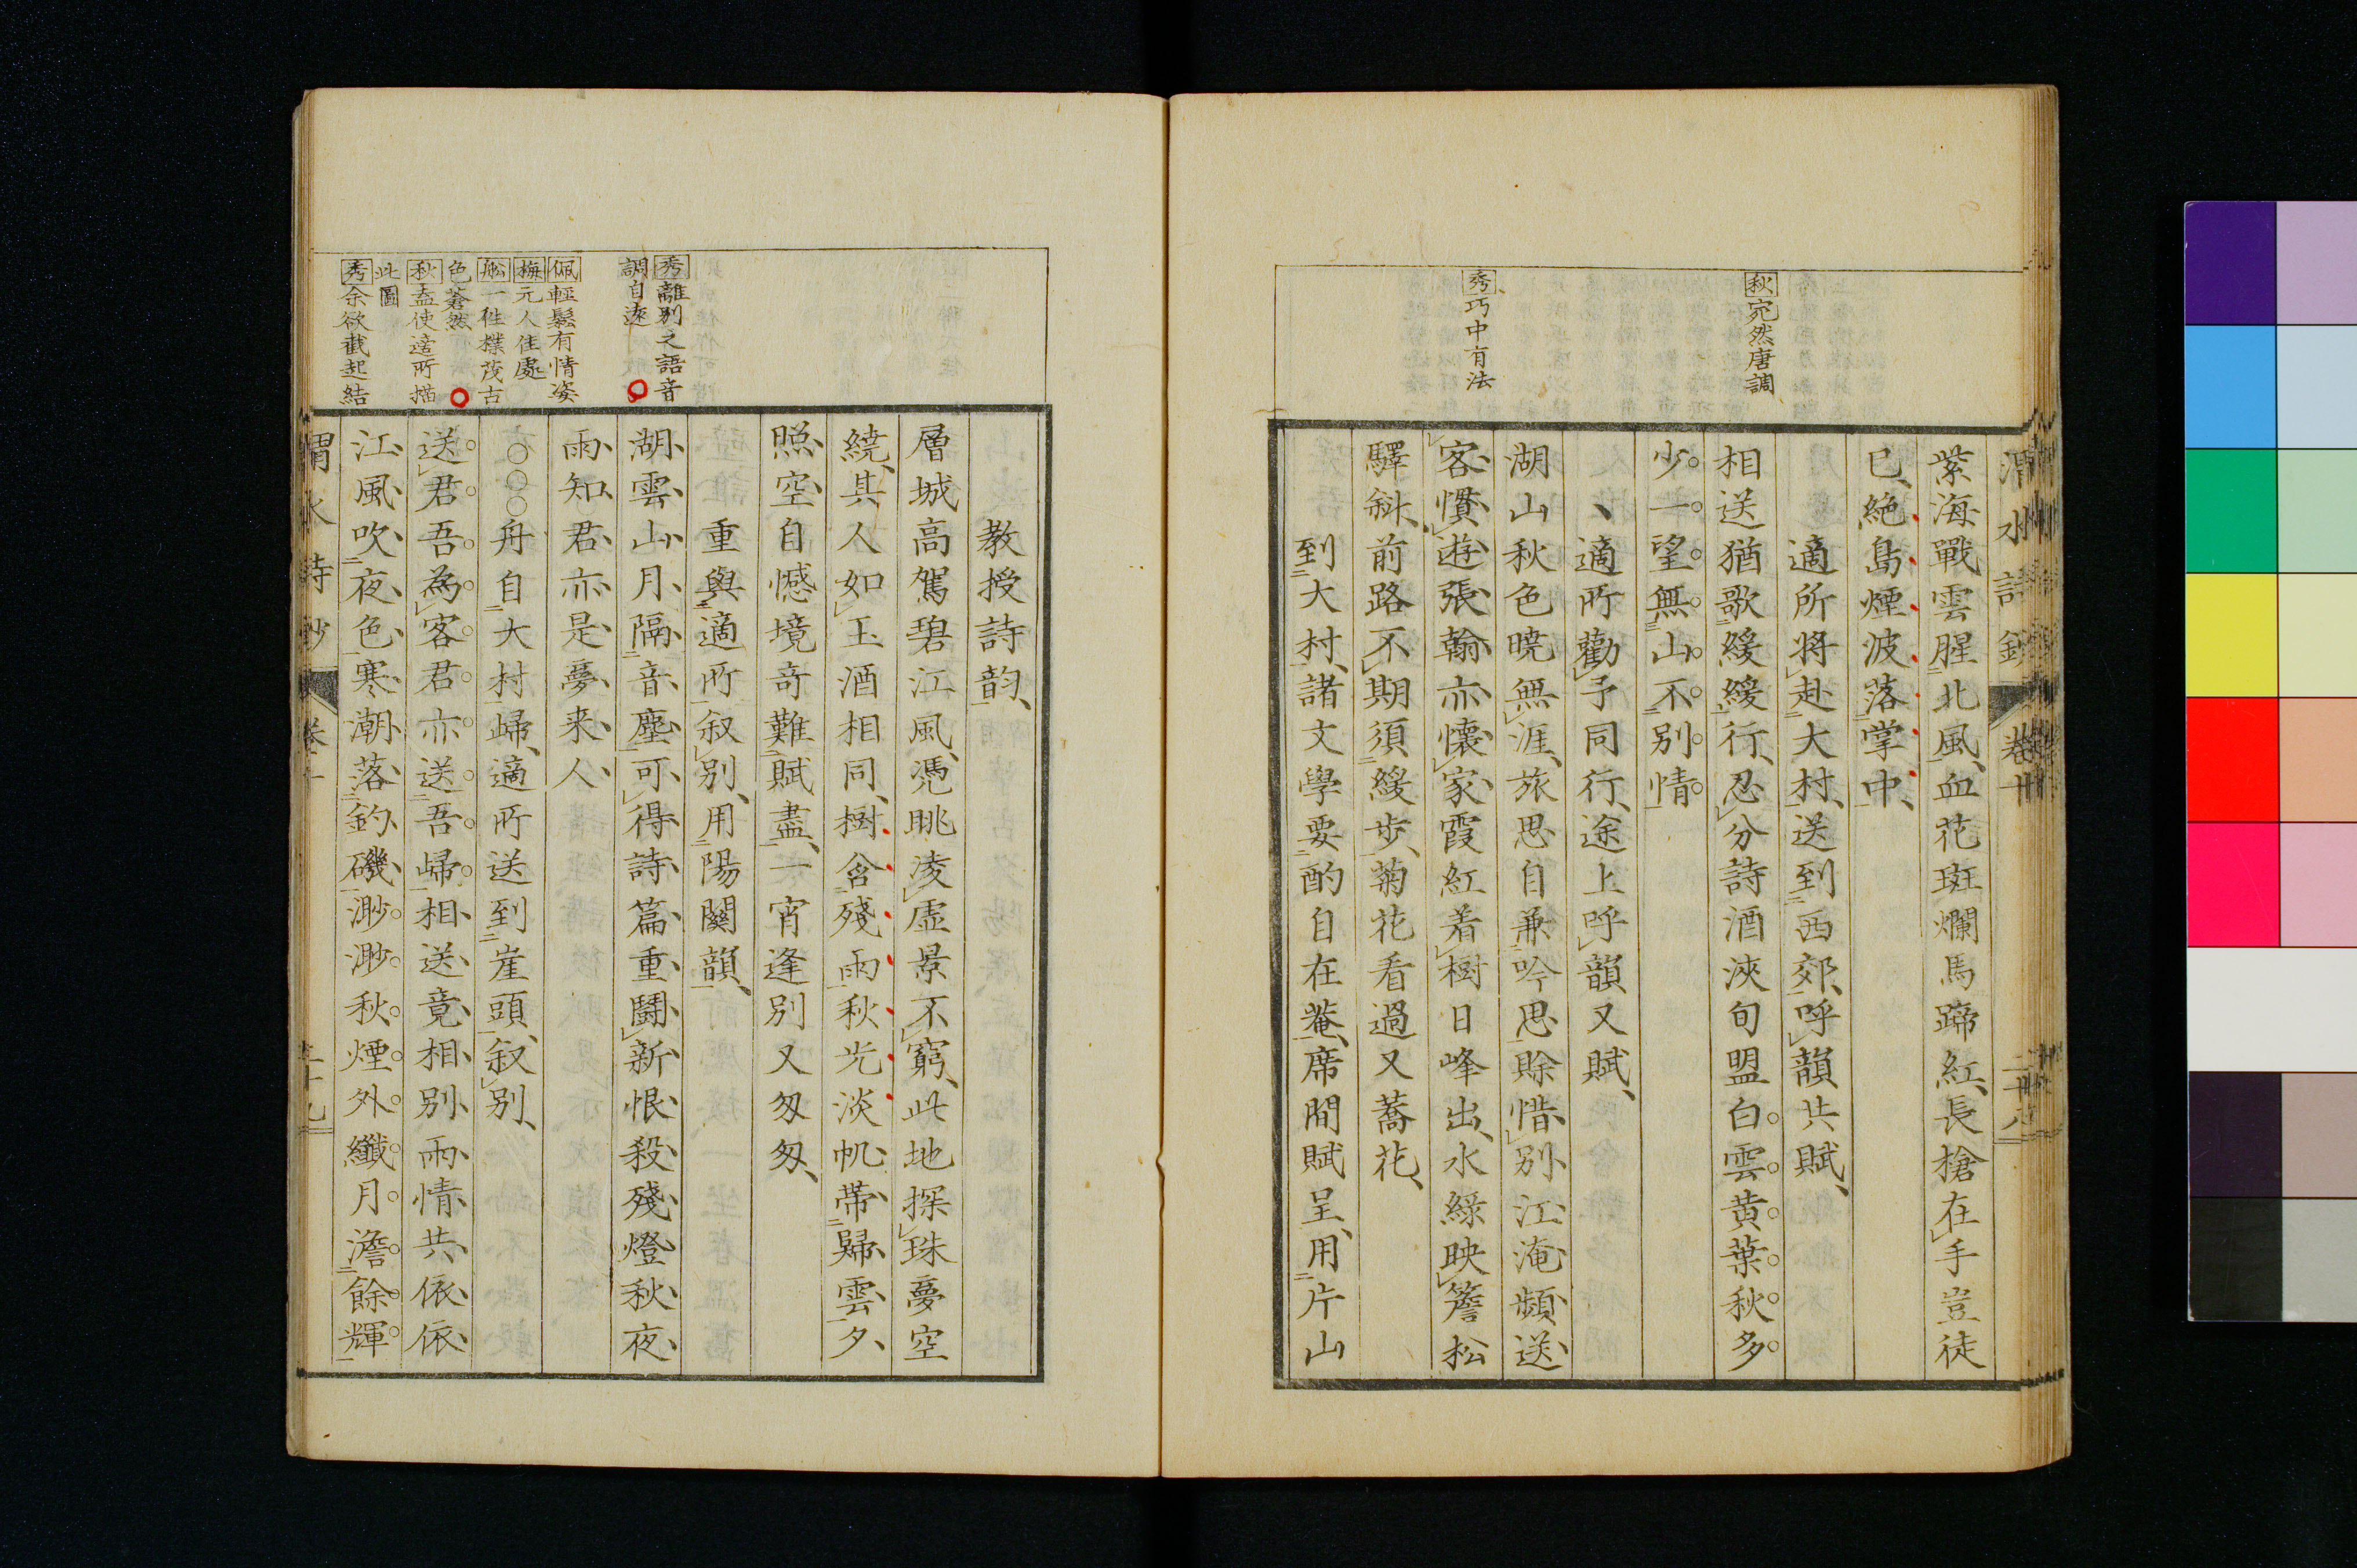 渭水詩鈔
卷十
二十八
秋宛然唐調
秀巧中有法
紫海戰雲腥北風血花斑爛馬蹄紅長槍在手豈徒
已絶島煙波落掌中
適所將赴大村送到西郊呼韻共賦
相送猶歌緩緩行忍分詩酒浹旬盟白雲黄葉秋多
少一望無山不別情
適所勸予同行途上呼韻又賦
湖山秋色曉無涯旅思自兼吟思賒惜別江淹頻送
客慣遊張翰亦懷家霞紅着樹日峰出水緑映簷松
驛斜前路不期須緩歩菊花看過又蕎花
到大村諸文學要酌自在菴席間賦呈用片山
秀離別之語音
調自遠
佩輕鬆有情姿
梅元人佳處
舩一種樸茂古
色蒼然
秋盍使適所描
此圖
秀余欲截起結
教授詩韵
層城高駕碧江風憑眺凌虚景不窮此地探珠夢空
繞其人如玉酒相同樹含殘雨秋光淡帆帶歸雲夕
照空自憾境奇難賦盡一宵逢別又匆匆
重與適所叙別用陽關韻
湖雲山月隔音塵可得詩篇重鬪新恨殺殘燈秋夜
雨知君亦是夢来人
○○○舟自大村歸適所送到崖頭叙別
送君吾為客君亦送吾歸相送竟相別兩情共依依
江風吹夜色寒潮落釣磯渺渺秋煙外纖月澹餘輝
渭水詩鈔
卷十
二十九